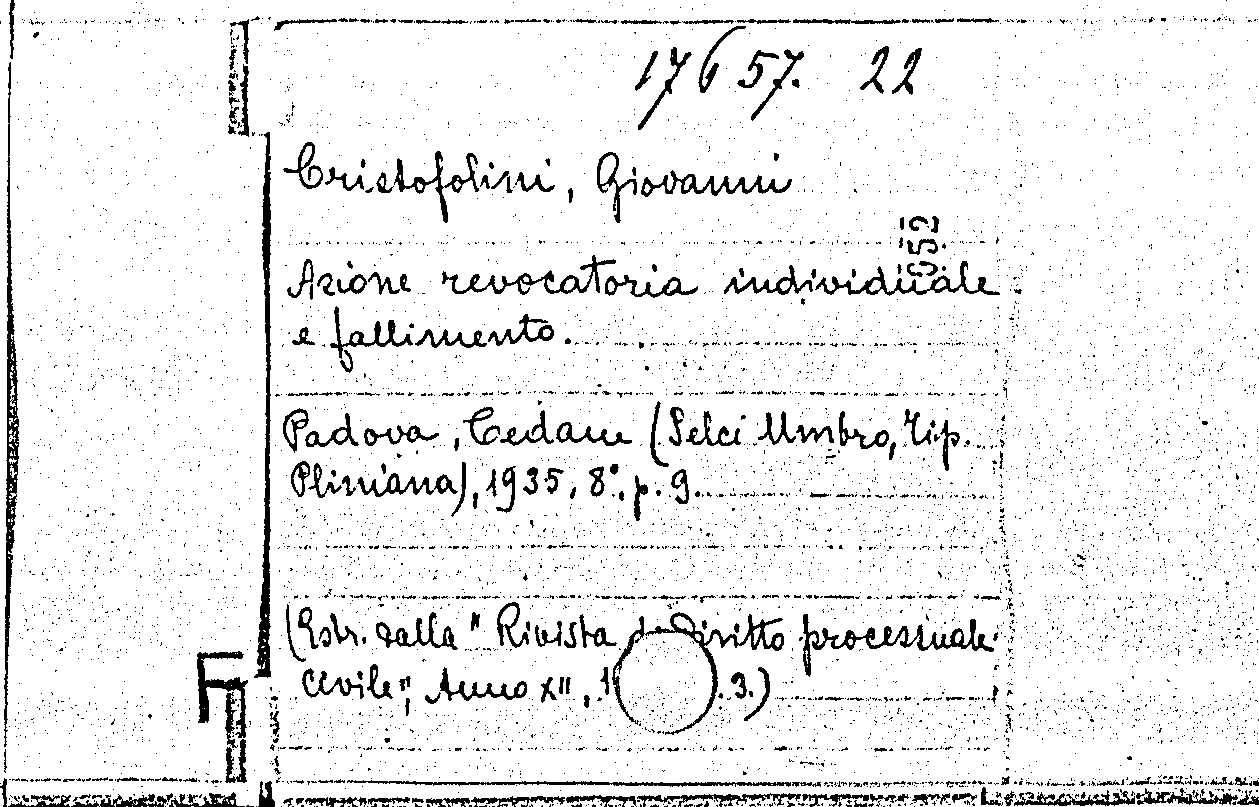 17657. 22
Cristofolini, Giovanni
652
Azione revocatoria individuale
e fallimento.
Padova, Cedam (Selci Umbro, Tip.
Pliniana), 1935, 8°, p. 9.
(Estr. dalla "Rivista di Diritto processuale
civile", Anno XII, 1 . 3.)